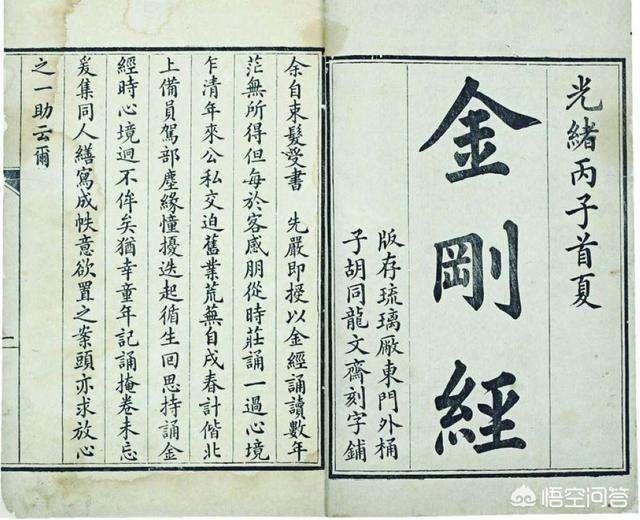 光緒丙子首夏
金剛經
版存琉璃厰東門外桶
子胡同龍文齋刻字鋪
余自束髮受書　先嚴即授以金經誦讀數年
茫無所得但每於客感朋從時莊誦一過心境
乍清年來公私交迫舊業荒蕪自戌春計偕北
上備員駕部塵緣憧擾迭起循生回思持誦金
經時心境迥不侔矣猶幸童年記誦掩卷未忘
爰集同人繕寫成帙意欲置之案頭亦求放心
之一助云爾
悟空问答